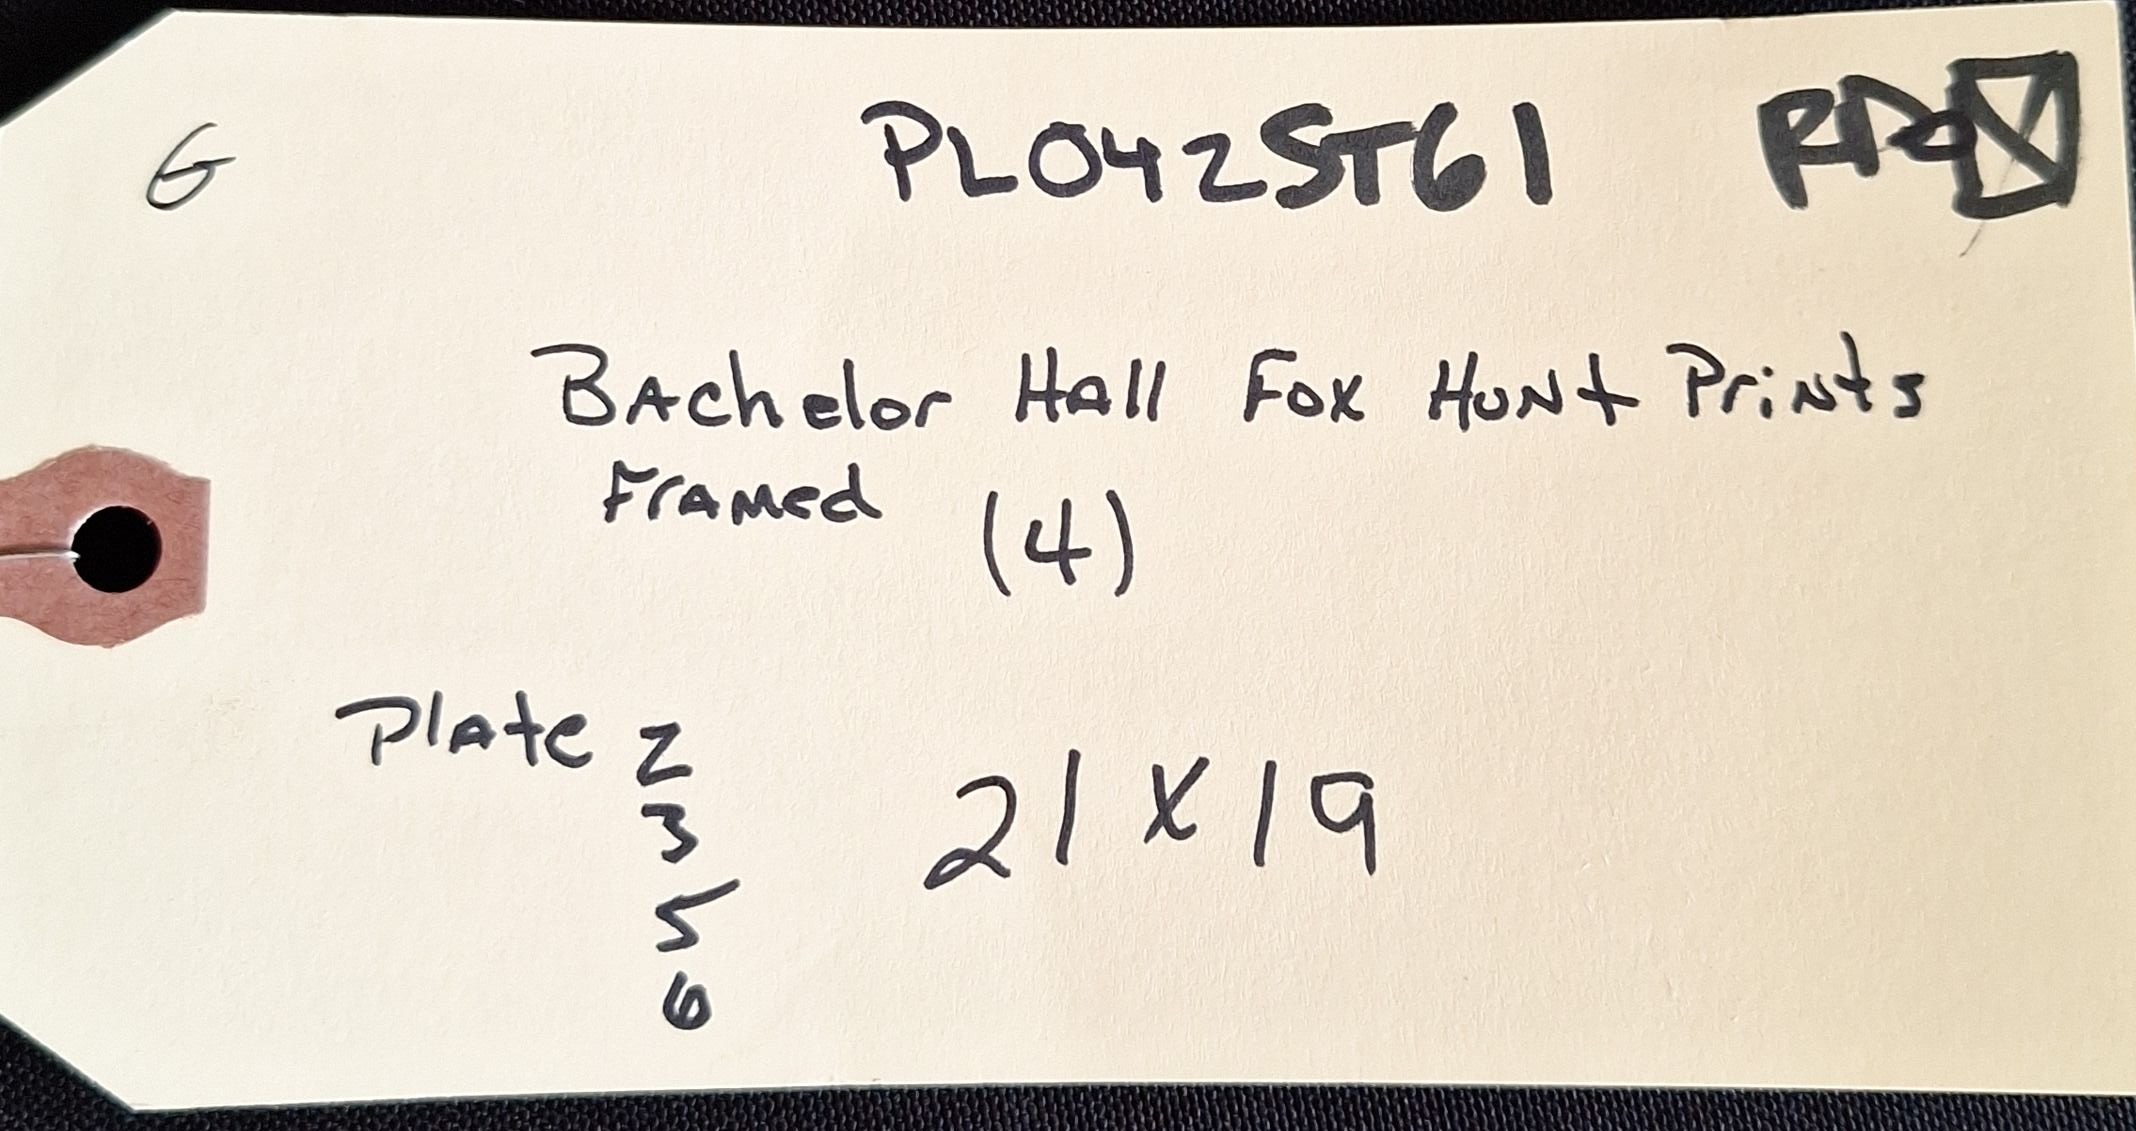 G PL042ST61
Bachelor Hall Fox Hunt Prints
Framed (4)
Plate 2
3
21 x 19
5
6